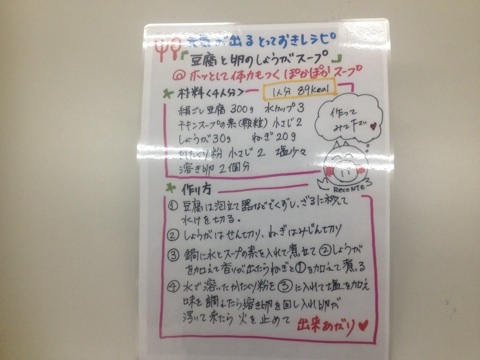 元気が出るとっておきレシピ
『豆腐と卵のしょうがスープ』
@ ホッとして体力もつくぽかぽかスープ
材料<4人分> 1人分 89kcal
絹ごし豆腐 300g 水カップ3
チキンスープの素(顆粒) 小さじ2
しょうが30g ねぎ20g
かたくり粉 小さじ2 塩少々
溶き卵 2個分
作って
みて下さい
作り方
① 豆腐は泡立て器などでくずし、ざるに移して
水けを切る。
② しょうがはせん切り、ねぎはみじん切り
③ 鍋に水とスープの素を入れて煮立て②しょうが
を加えて香りが出たらねぎと①を加えて煮る
④ 水で溶いたかたくり粉を③に入れて塩を加え
味を調えたら溶き卵を回し入れ卵が
浮いて来たら火を止めて 出来あがり